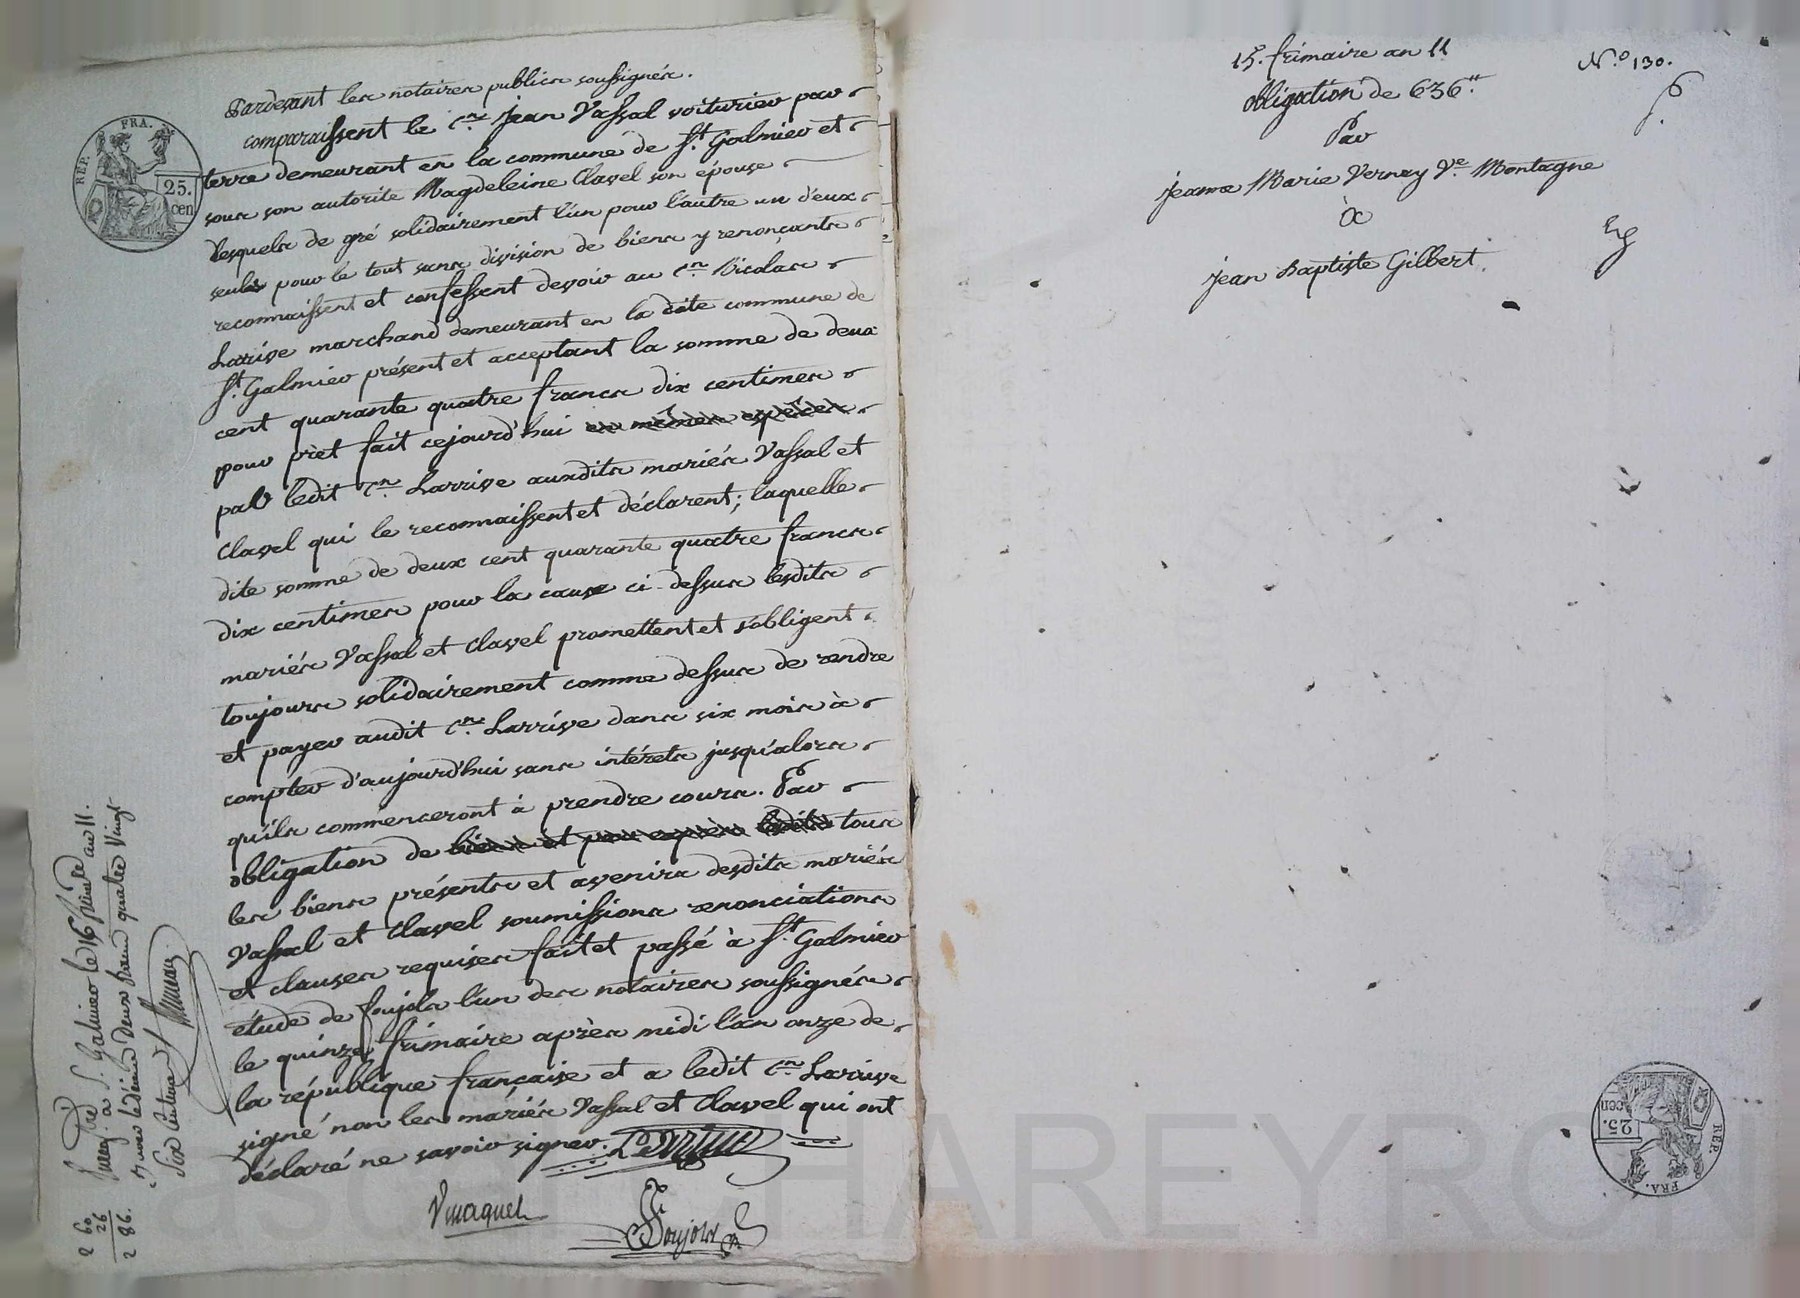 Pardevant les notaires publics soussignés.
comparaissent le c.en jean Vassal voiturier par
terre demeurant en la commune de St. Galmier et
sous son autorité Magdeleine Clavel son épouse
lesquels de gré solidairement l'un pour l'autre un d'eux
seuls pour le tout sans division de biens y renonçants
reconnaissent et confessent devoir au c.en Nicolas
Larrive marchand demeurant en la dite commune de
St. Galmier présent et acceptant la somme de deux
cent quarante quatre francs dix centimes
pour prèt fait cejourd'hui en mêmes espèces
par ledit c.en Larrive auxdits mariés Vassal et
Clavel qui le reconnaissent et déclarent; laquelle
dite somme de deux cent quarante quatre francs
dix centimes pour la cause ci-dessus lesdits
mariés Vassal et Clavel promettent et s'obligent
toujours solidairement comme dessus de rendre
et payer audit c.en Larrive dans six mois à
compter d'aujourd'hui sans intérets jusqu'alors
qu'ils commenceront à prendre cours. Par
obligation de tous
les biens présents et avenirs desdits mariés
Vassal et Clavel soumissions renonciations
et clauses requises fait et passé à St. Galmier
étude de Foujols l'un des notaires soussignés
le quinze frimaire après midi l'an onze de
la république française et a ledit c.en Larrive
signé non les mariés Vassal et Clavel qui ont
déclaré ne savoir signer. Larrive
Foujols
REP. FRA.
25.
cen
a S. Galmier le 16 frimre an 11.
deux francs quatre vingt
Six Centimes
2 60
26
2 86.
15. frimaire an 11
N.o 130.
obligation de 636.
Par
jeanne Marie Vernay Ve. Montagne
à
jean Baptiste Gilbert.
REP. FRA.
25.
cen
CHAREYRON